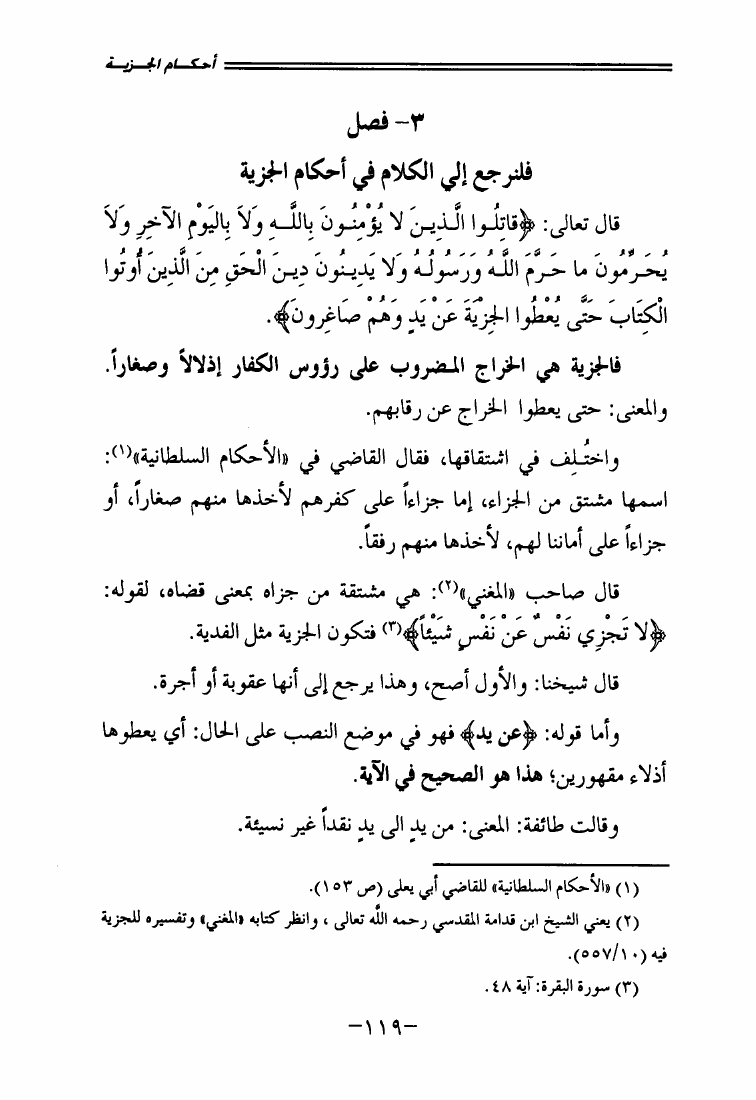 أحكام الجزية
٣- فصل
فلنرجع إلي الكلام في أحكام الجزية
قال تعالى: ﴿قاتِلُوا الَّذِينَ لا يُؤْمِنُونَ بِاللَّهِ وَلَا بِاليَوْمِ الآخِرِ وَلَا
يُحَرِّمُونَ ما حَرَّمَ اللَّهُ وَرَسُولُهُ وَلا يَدِينُونَ دِينَ الْحَقِ مِنَ الَّذِينَ أُوتُوا
الْكِتَابَ حَتَّى يُعْطُوا الجِزْيَةَ عَنْ يَدٍ وَهُمْ صَاغِرونَ﴾.
فالجزية هي الخراج المضروب على رؤوس الكفار إذلالاً وصغاراً.
والمعنى: حتى يعطوا الخراج عن رقابهم.
واختُلِف في اشتقاقها، فقال القاضي في «الأحكام السلطانية»(١):
اسمها مشتق من الجزاء، إما جزاءاً على كفرهم لأخذها منهم صغاراً، أو
جزاءاً على أماننا لهم، لأخذها منهم رفقاً.
قال صاحب «المغني»(٢): هي مشتقة من جزاه بمعنى قضاه، لقوله:
﴿لا تَجْزِي نَفْسٌ عَنْ نَفْسٍ شَيْئاً﴾(٣) فتكون الجزية مثل الفدية.
قال شيخنا: والأول أصح، وهذا يرجع إلى أنها عقوبة أو أجرة.
وأما قوله: ﴿عن يد﴾ فهو في موضع النصب على الحال: أي يعطوها
أذلاء مقهورين؛ هذا هو الصحيح في الآية.
وقالت طائفة: المعنى: من يدٍ الى يدٍ نقداً غير نسيئة.
(١) «الأحكام السلطانية» للقاضي أبي يعلى (ص ١٥٣).
(٢) يعني الشيخ ابن قدامة المقدسي رحمه اللَّه تعالى ، وانظر كتابه «المغني» وتفسيره للجزية
فيه (١٠/٥٥٧).
(٣) سورة البقرة: آية ٤٨ .
-١١٩-